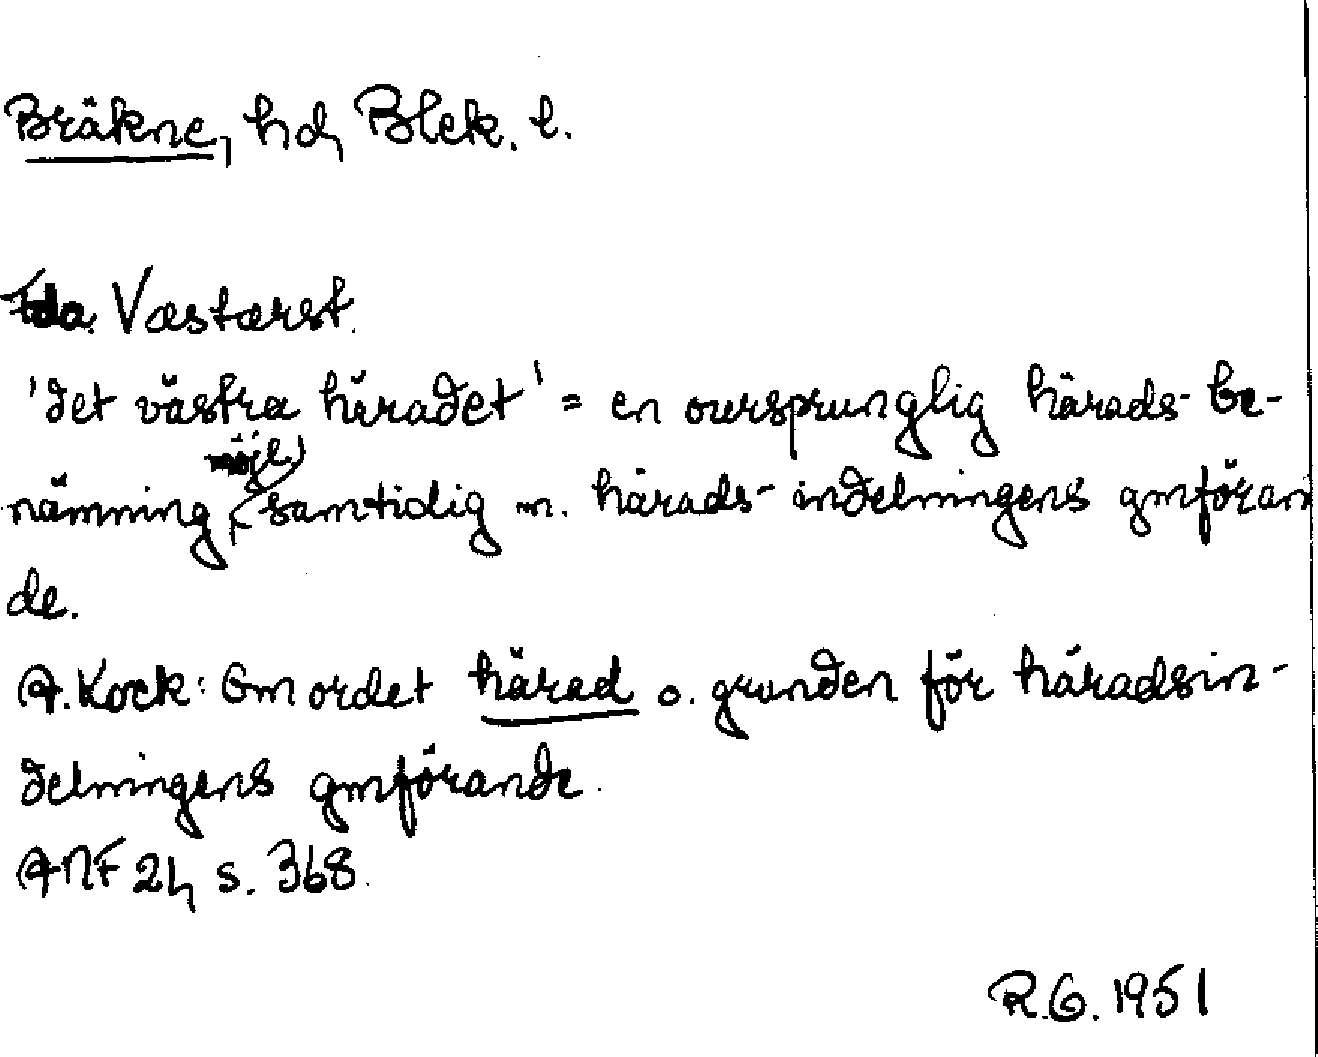 Bräkne, hd, Blek. l.
Fda. Væstærst.
'det västra häradet' = en oursprunglig härads-be-
nämning, (möjl.) samtidig m. härads-indelningens gmföran
de.
A. Kock: Om ordet härad o. grunden för häradsin-
delningens gmförande.
ANF 21, s. 368.
R.G. 1951